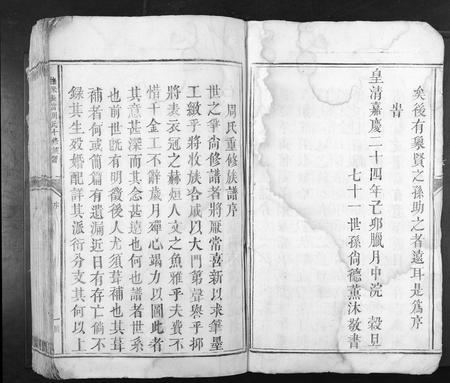 矣後有眾賢之孫助之者遠耳是為序
旹
皇清嘉慶二十四年己卯臘月中浣　穀旦
七十一世孫尙德薰沐敬書
周氏重修族譜序
世之爭尙修譜者將厭常喜新以求筆墨
工緻乎將收族合戚以大門第聲舉乎抑
將表衣冠之赫烜人文之魚雅乎夫費不
惜千金工不辭歲月殫心竭力以圖此者
其意甚深而其念甚遠也何也譜者世系
也前世旣有明徵後人尤須葺補也其葺
補者何或簡篇有遺漏近日有存亡倘不
錄其生歿婚配詳其派衍分支其何以上
序